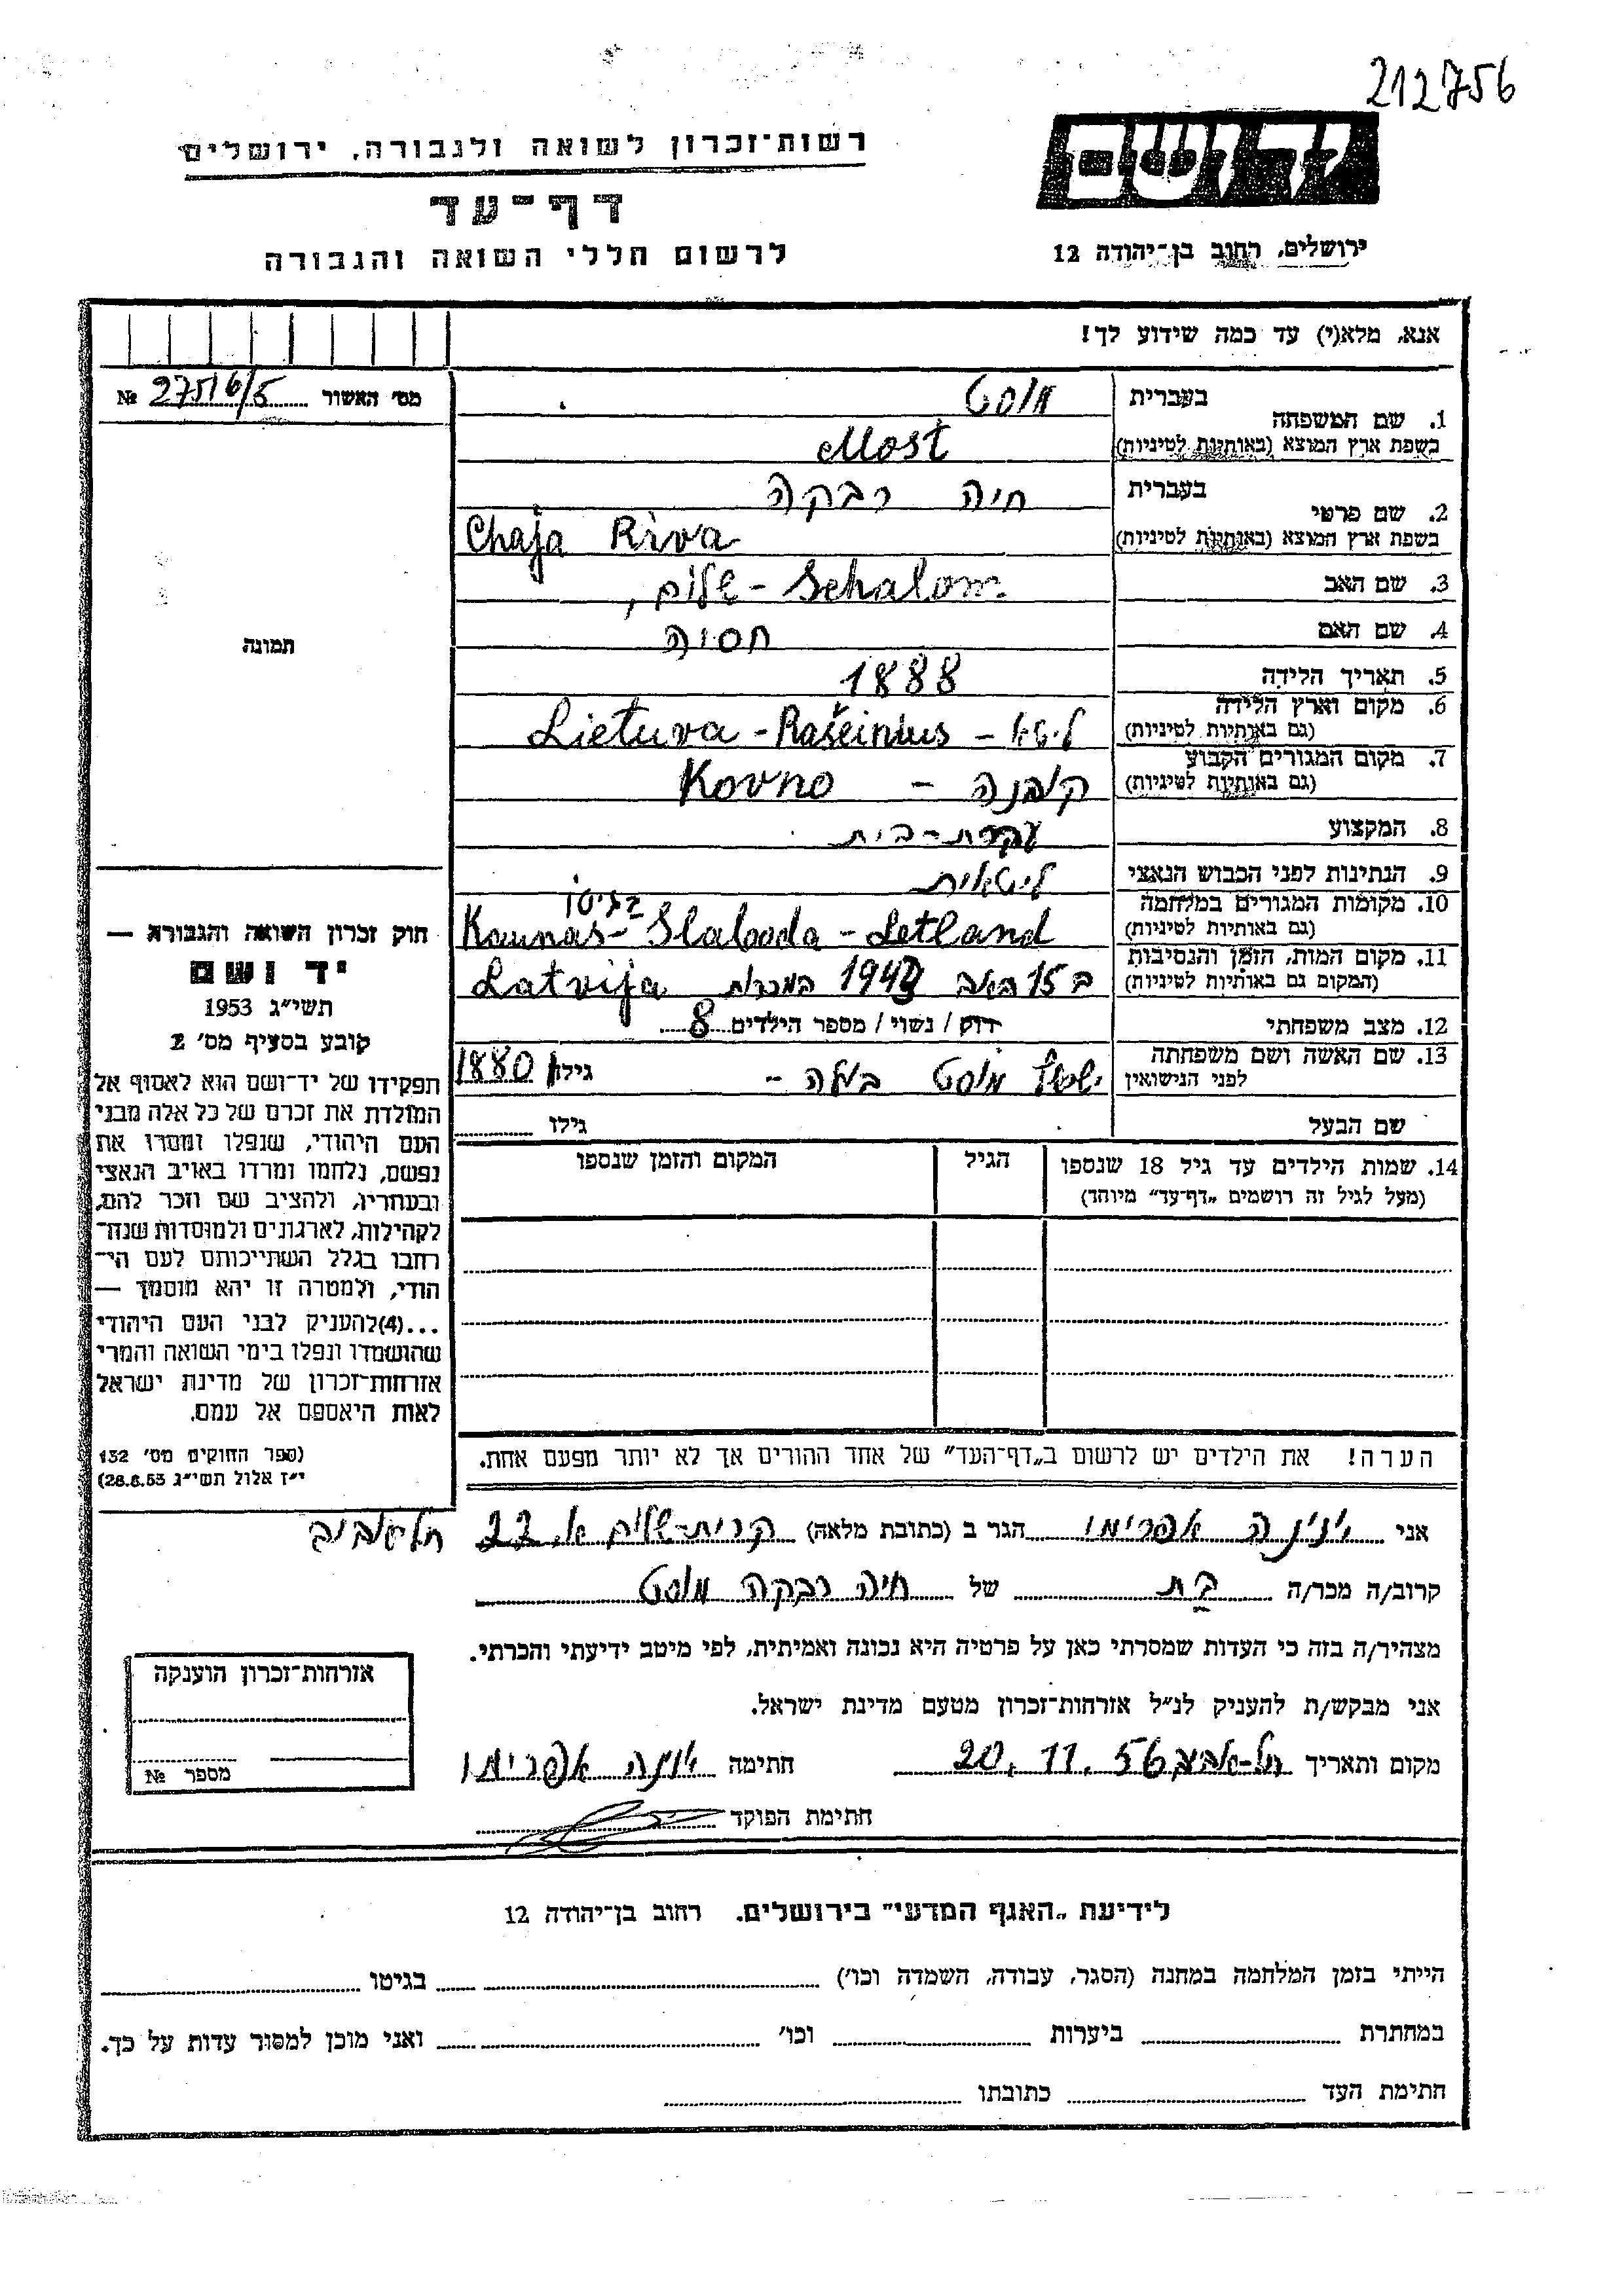 212756
רשות־זכרון לשואה ולגבורה, ירושלים
יד ושם
דף־עד
לרשום חללי השואה והגבורה
ירושלים, רחוב בן־יהודה 12
אנא, מלא(י) עד כמה שידוע לך!
מס׳ האשור 27516/5 №
בעברית מוסט
1. שם המשפחה
בשפת ארץ המוצא (באותיות לטיניות) Most
בעברית חיה רבקה
2. שם פרטי
בשפת ארץ המוצא (באותיות לטיניות) Chaja Riva
3. שם האב Schalom - שלום,
4. שם האם חסיה
תמונה
5. תאריך הלידה 1888
6. מקום וארץ הלידה
(גם באותיות לטיניות) ליטא - Lietuva - Rašeinius
7. מקום המגורים הקבוע
(גם באותיות לטיניות) קובנה - Kovno
8. המקצוע עקרת-בית
9. הנתינות לפני הכבוש הנאצי ליטאית
10. מקומות המגורים במלחמה בגיטו
(גם באותיות לטיניות) Kaunas - Slabooda - Letland
11. מקום המות, הזמן והנסיבות
(המקום גם באותיות לטיניות) ב 15 באב 1943 Latvija
12. מצב משפחתי רוק / נשוי / מספר הילדים 8
13. שם האשה ושם משפחתה
לפני הנישואין מוסט גילה 1880
שם הבעל גילו
14. שמות הילדים עד גיל 18 שנספו הגיל המקום והזמן שנספו
(מעל לגיל זה רושמים „דף־עד״ מיוחד)
חוק זכרון השואה והגבורה —
יד ושם
תשי״ג 1953
קובע בסעיף מס׳ 2
תפקידו של יד־ושם הוא לאסוף אל
המולדת את זכרם של כל אלה מבני
העם היהודי, שנפלו ומסרו את
נפשם, נלחמו ומרדו באויב הנאצי
ובעוזריו, ולהציב שם וזכר להם,
לקהילות, לארגונים ולמוסדות שנח־
רבו בגלל השתייכותם לעם הי־
הודי, ולמטרה זו יהא מוסמך —
...(4)להעניק לבני העם היהודי
שהושמדו ונפלו בימי השואה והמרי
אזרחות־זכרון של מדינת ישראל
לאות היאספם אל עמם.
(ספר החוקים מס׳ 132
י״ז אלול תשי״ג 28.8.53)
הערה! את הילדים יש לרשום ב„דף־העד״ של אחד ההורים אך לא יותר מפעם אחת.
אני אפרימי הגר ב (כתובת מלאה) קרית-שלום 22 תל-אביב
קרוב/ה מכר/ה בת של חיה רבקה מוסט
מצהיר/ה בזה כי העדות שמסרתי כאן על פרטיה היא נכונה ואמיתית, לפי מיטב ידיעתי והכרתי.
אני מבקש/ת להעניק לנ״ל אזרחות־זכרון מטעם מדינת ישראל.
מקום ותאריך תל-אביב 20.11.56 חתימה אפרימי
חתימת הפוקד
אזרחות־זכרון הוענקה
מספר №
לידיעת „האגף המדעי״ בירושלים. רחוב בן־יהודה 12
הייתי בזמן המלחמה במחנה (הסגר, עבודה, השמדה וכו׳) בגיטו
במחתרת ביערות וכו׳ ואני מוכן למסור עדות על כך.
חתימת העד כתובתו